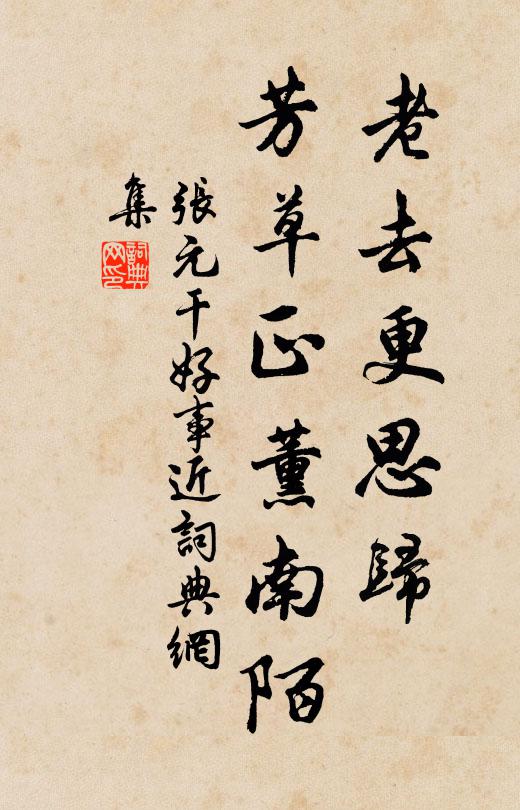 老去更思歸
芳草正薰南陌
張元干好事近詞典網
集
詞典
网印